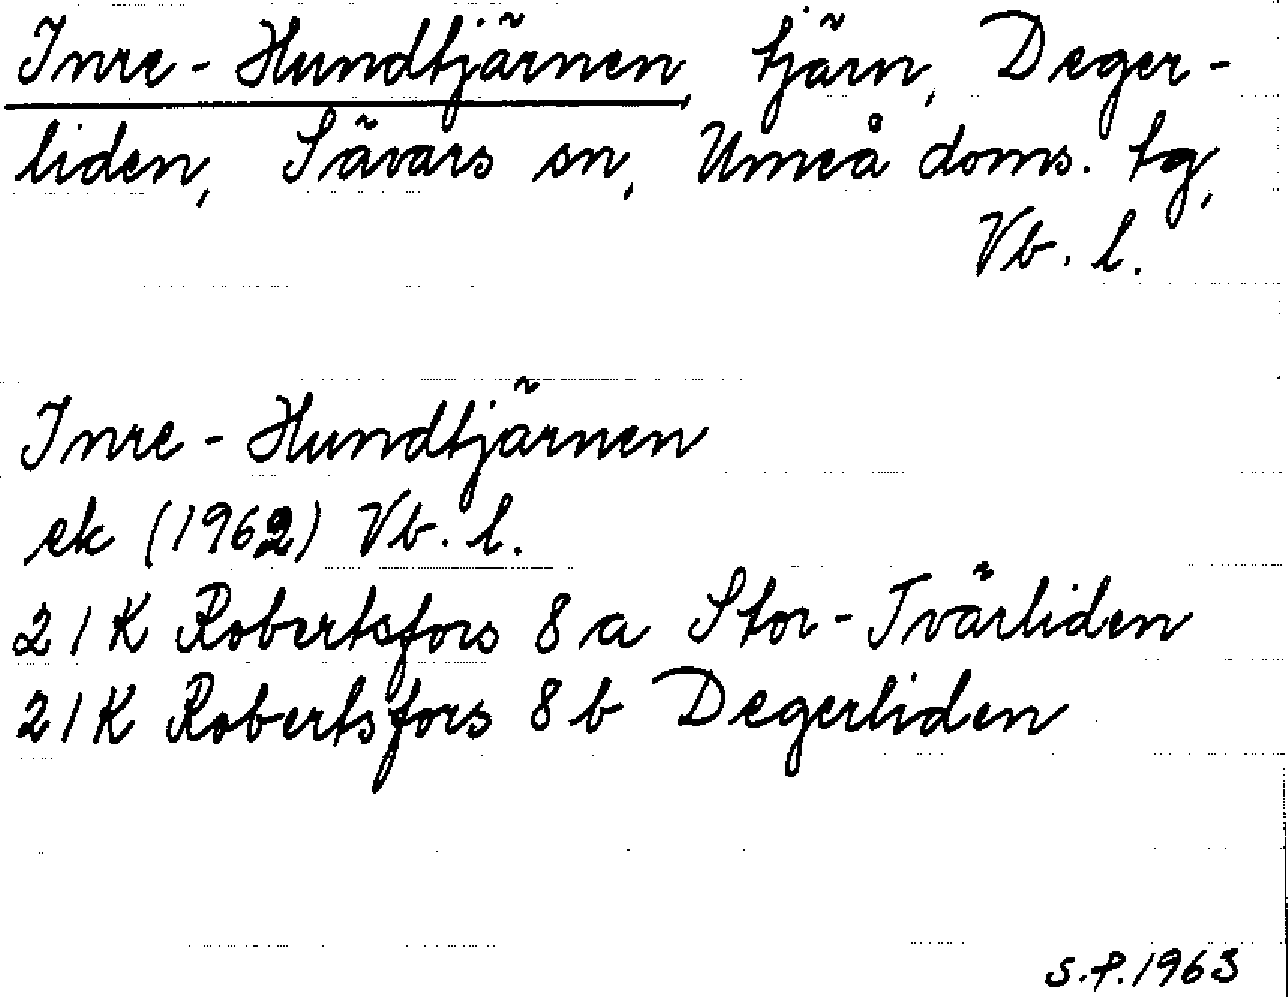 Inre-Hundtjärnen, tjärn, Deger-
liden, Sävars sn, Umeå doms. tg,
Vb. l.
Inre-Hundtjärnen
ek (1962) Vb. l.
21K Robertsfors 8a Stor-Tvärliden
21K Robertsfors 8b Degerliden
S.P. 1963